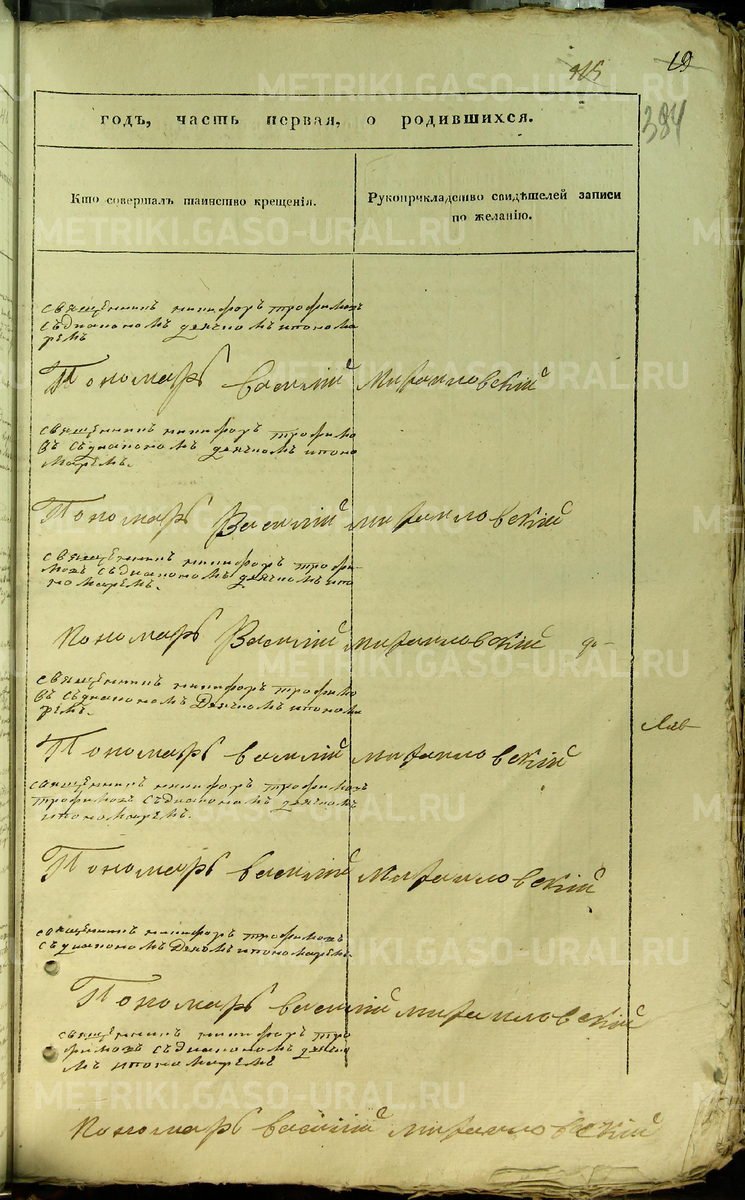 415 19
384
годъ, часть первая, о родившихся.
Кто совершалъ таинство крещенія.
Рукоприкладство свидѣтелей записи
по желанію.
священникъ никифоръ трофимовъ
съдиакономъ дьячкомъ ипонома
ремъ
Пономарь василій Михаиловскій
священникъ никифоръ трофимо
въ съдиакономъ дьячкомъ ипоно
маремъ.
Пономарь Василій михаиловскій
священникъ никифоръ трофи-
мовъ съдиакономъ дьячкомъ ипо
номаремъ.
пономарь Василій михаиловскій
священникъ никифоръ трофимо
въ съдиакономъ Дьячкомъ ипонома
ремъ.
Пономарь василій михаиловскій
священникъ никифоръ трофимовъ
трофимовъ съдиакономъ дьячкомъ
ипономаремъ.
Пономарь василій михаиловскій
священникъ никифоръ трофимовъ
съдиакономъ Дьякомъ ипономаремъ.
Пономарь василій михаиловскій
священникъ никифоръ тро
фимовъ съдиакономъ дьячко
мъ ипономаремъ
пономарь василій михаиловскій
METRIKI.GASO-URAL.RU